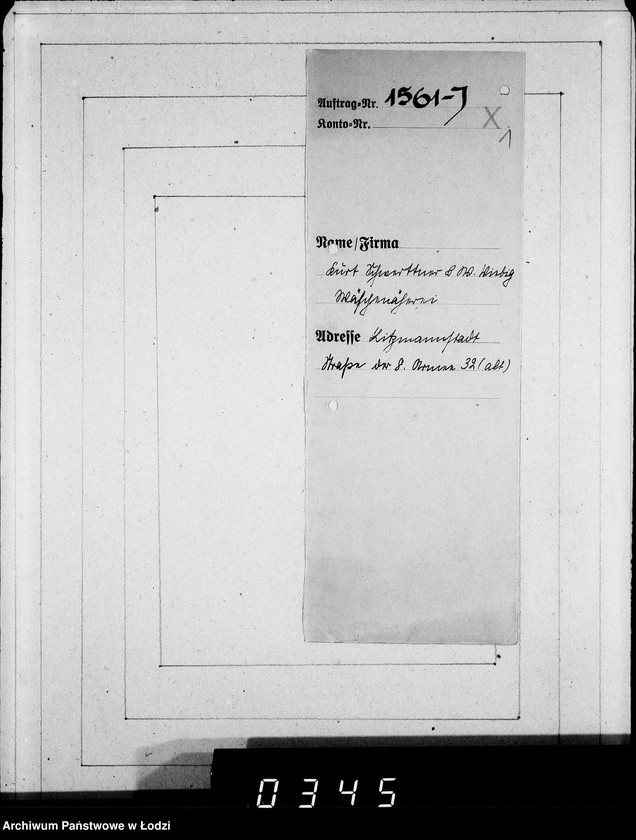 Auftrag-Nr. 1561-J
Konto-Nr.
X
1
Name/Firma
Kurt Schwerttner & W. Wiebeg
Wäschenäherei
Adresse Litzmannstadt
Straße der 8. Armee 32 (alt)
0345
Archiwum Państwowe w Łodzi